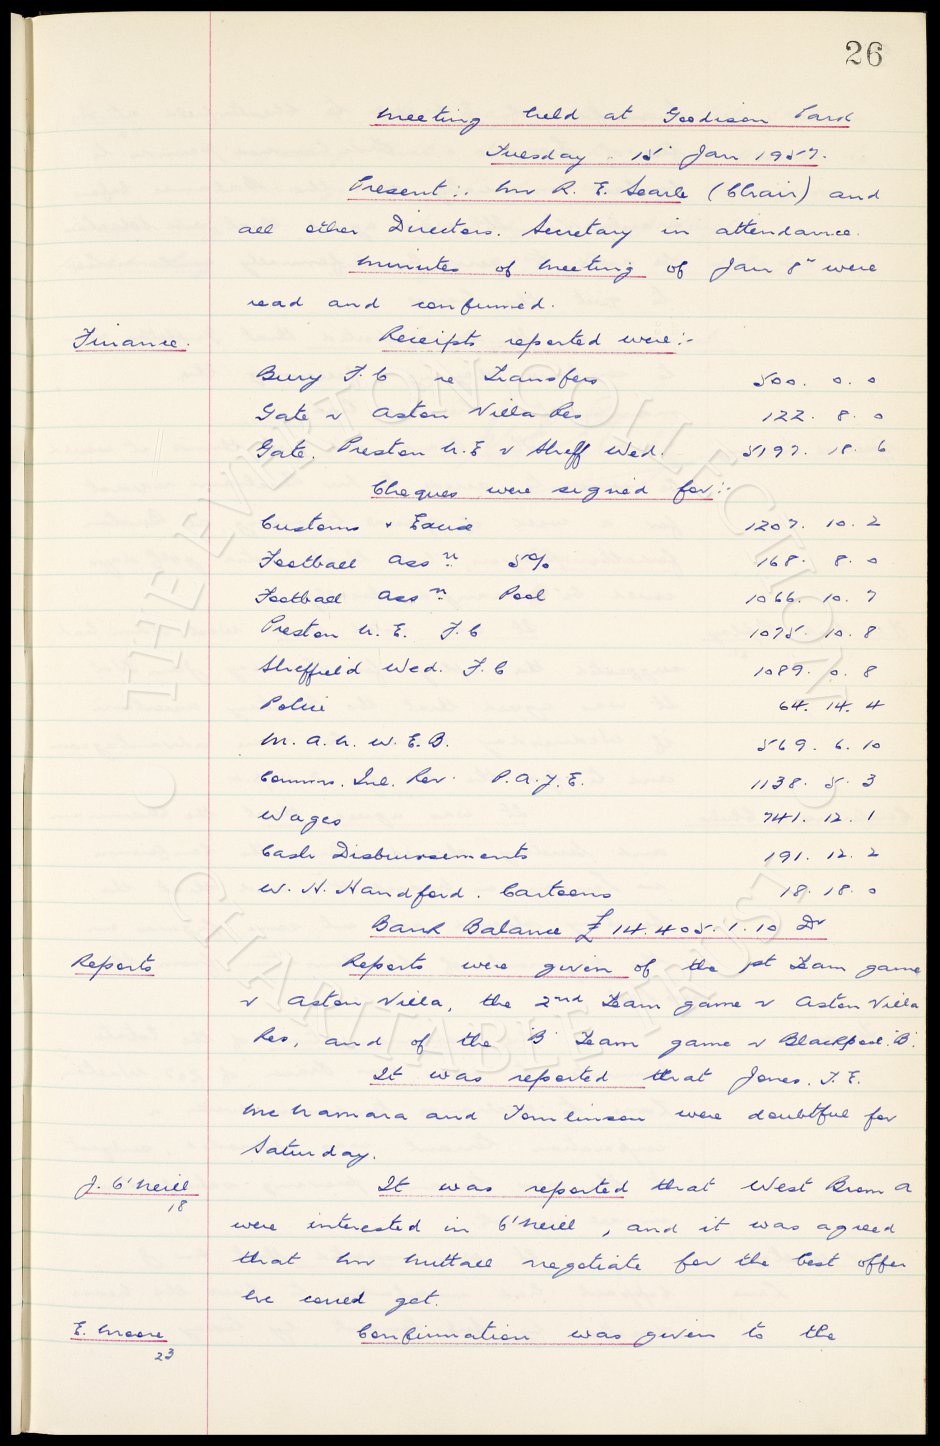 26
Meeting held at Goodison Park
Tuesday. 15" Jan 1957.
Present:. Mr R. E. Searle (Chair) and
all other Directors. Secretary in attendance.
Minutes of Meeting of Jan 8" were
read and confirmed.
Finance. Receipts reported were:-
Bury F.C re Transfers 500. 0. 0
Gate v Aston Villa Res 122. 8. 0
Gate. Preston N.E v Sheff Wed. 5197. 18. 6
Cheques were signed for:-
Customs & Excise 1207. 10. 2
Football Assn. 5% 168. 8. 0
Football Assn. Pool 1066. 10. 7
Preston N. E. F.C 1075. 10. 8
Sheffield Wed. F.C 1089. 0. 8
Police 64. 14. 4
M. A. N. W. E. B. 569. 6. 10
Comms. Inl. Rev. P.A.Y.E. 1138. 5. 3
Wages 741. 12. 1
Cash Disbursements 191. 12. 2
W. H. Handford. Cartoons 18. 18. 0
Bank Balance £14.405.1.10 Dr
Reports Reports were given of the 1st Team game
v Aston Villa, the 2nd Team game v Aston Villa
Res, and of the 'B' Team game v Blackpool 'B'.
It was reported that Jones. T. E.
McNamara and Tomlinson were doubtful for
Saturday.
J. O'Neill It was reported that West Brom A
18
were interested in O'Neill, and it was agreed
that Mr Nuttall negotiate for the best offer
he could get.
E. Moore Confirmation was given to the
23
© THE EVERTON COLLECTION
CHARITABLE TRUST